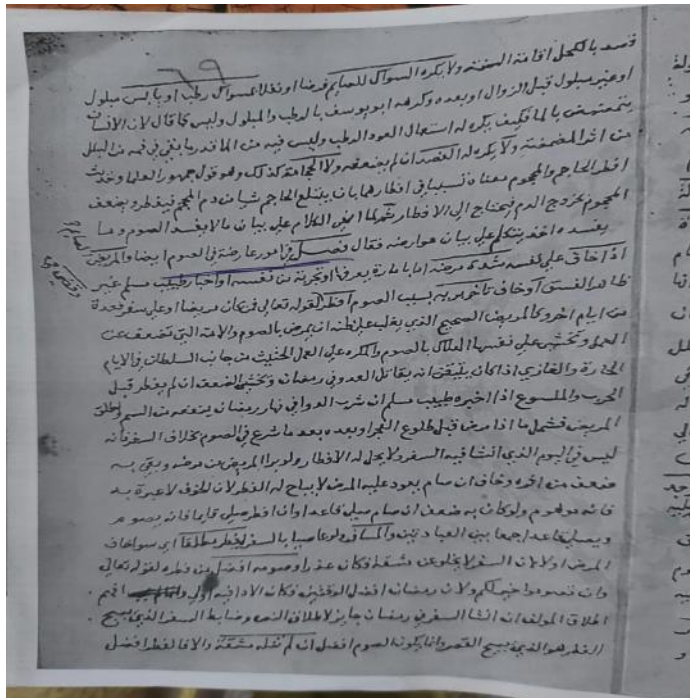 قصد بالكحل اقامة السنة ولا يكره السواك للصايم فرضا او نفلا بسواك رطب او يابس مبلول
او غير مبلول قبل الزوال او بعده وكرهه ابو يوسف بالرطب والمبلول وليس كما قال لان الانسان
يتمضمض بالما فكيف يكره له استعمال العود الرطب وليس فيه من الما قدر ما يبقي في فمه من البلل
من اثر المضمضة ولا يكره له الفصد ان لم يضعفه ولا الحجامة كذلك وهو قول جمهور العلما وحديث
افطر الحاجم والمحجوم معناه تسببا في افطارهما بان يبتلع الحاجم شيا من دم المحجم فيفطر ويضعف
المحجوم بخروج الدم فيحتاج الي الافطار ثم لما انهي الكلام علي بيان ما لا يفسد الصوم وما
يفسده اخذ يتكلم علي بيان عوارضه فقال فصل في امور عارضة في الصوم ايضا والمريض
اذا خاف علي نفسه شدة مرضه اما بامارة يعرفها او تجربة من نفسه او اخبار طبيب مسلم غير
ظاهر الفسق او خاف تاخر بريه بسبب الصوم افطر لقوله تعالي فمن كان مريضا او علي سفر فعدة
من ايام اخر وكالمريض الصحيح الذي يغلب علي ظنه انه يمرض بالصوم والامة التي تضعف عن
العمل وتخشي علي نفسها الهلاك بالصوم والمكره علي العمل الحثيث من جانب السلطان في الايام
الحارة والغازي اذا كان يتيقن انه يقاتل العدو في رمضان ويخشي الضعف ان لم يفطر قبل
الحرب والملسوع اذا اخبره طبيب مسلم ان شرب الدوا في نهار رمضان ينفعه من السم واطلق
المريض فشمل ما اذا مرض قبل طلوع الفجر او بعده بعد ما شرع في الصوم بخلاف السفر فانه
ليس في اليوم الذي انشا فيه السفر ولا يحل له الافطار ولو برا المريض من مرضه وبقي به
ضعف من اثره وخاف ان صام يعود عليه المرض لا يباح له الفطر لان الخوف لا عبرة به
فانه موهوم ولو كان به ضعف ان صام صلي قاعدا وان افطر صلي قايما فانه يصوم
ويصلي قاعدا جمعا بين العبادتين والمسافر ولو عاصيا بالسفر يفطر مطلقا اي سوا خاف
المرض او لا لان السفر لا يخلو عن مشقة فكان عذرا وصومه افضل من فطره لقوله تعالي
وان تصوموا خير لكم ولان رمضان افضل الوقتين فكان الادا فيه اولي افهم
اطلاق المولف ان انشا السفر في رمضان جايز لاطلاق النص وضابط السفر الذي يبيح
الفطر هو الذي يبيح القصر وانما يكون الصوم افضل ان لم تنله مشقة والا فالفطر افضل